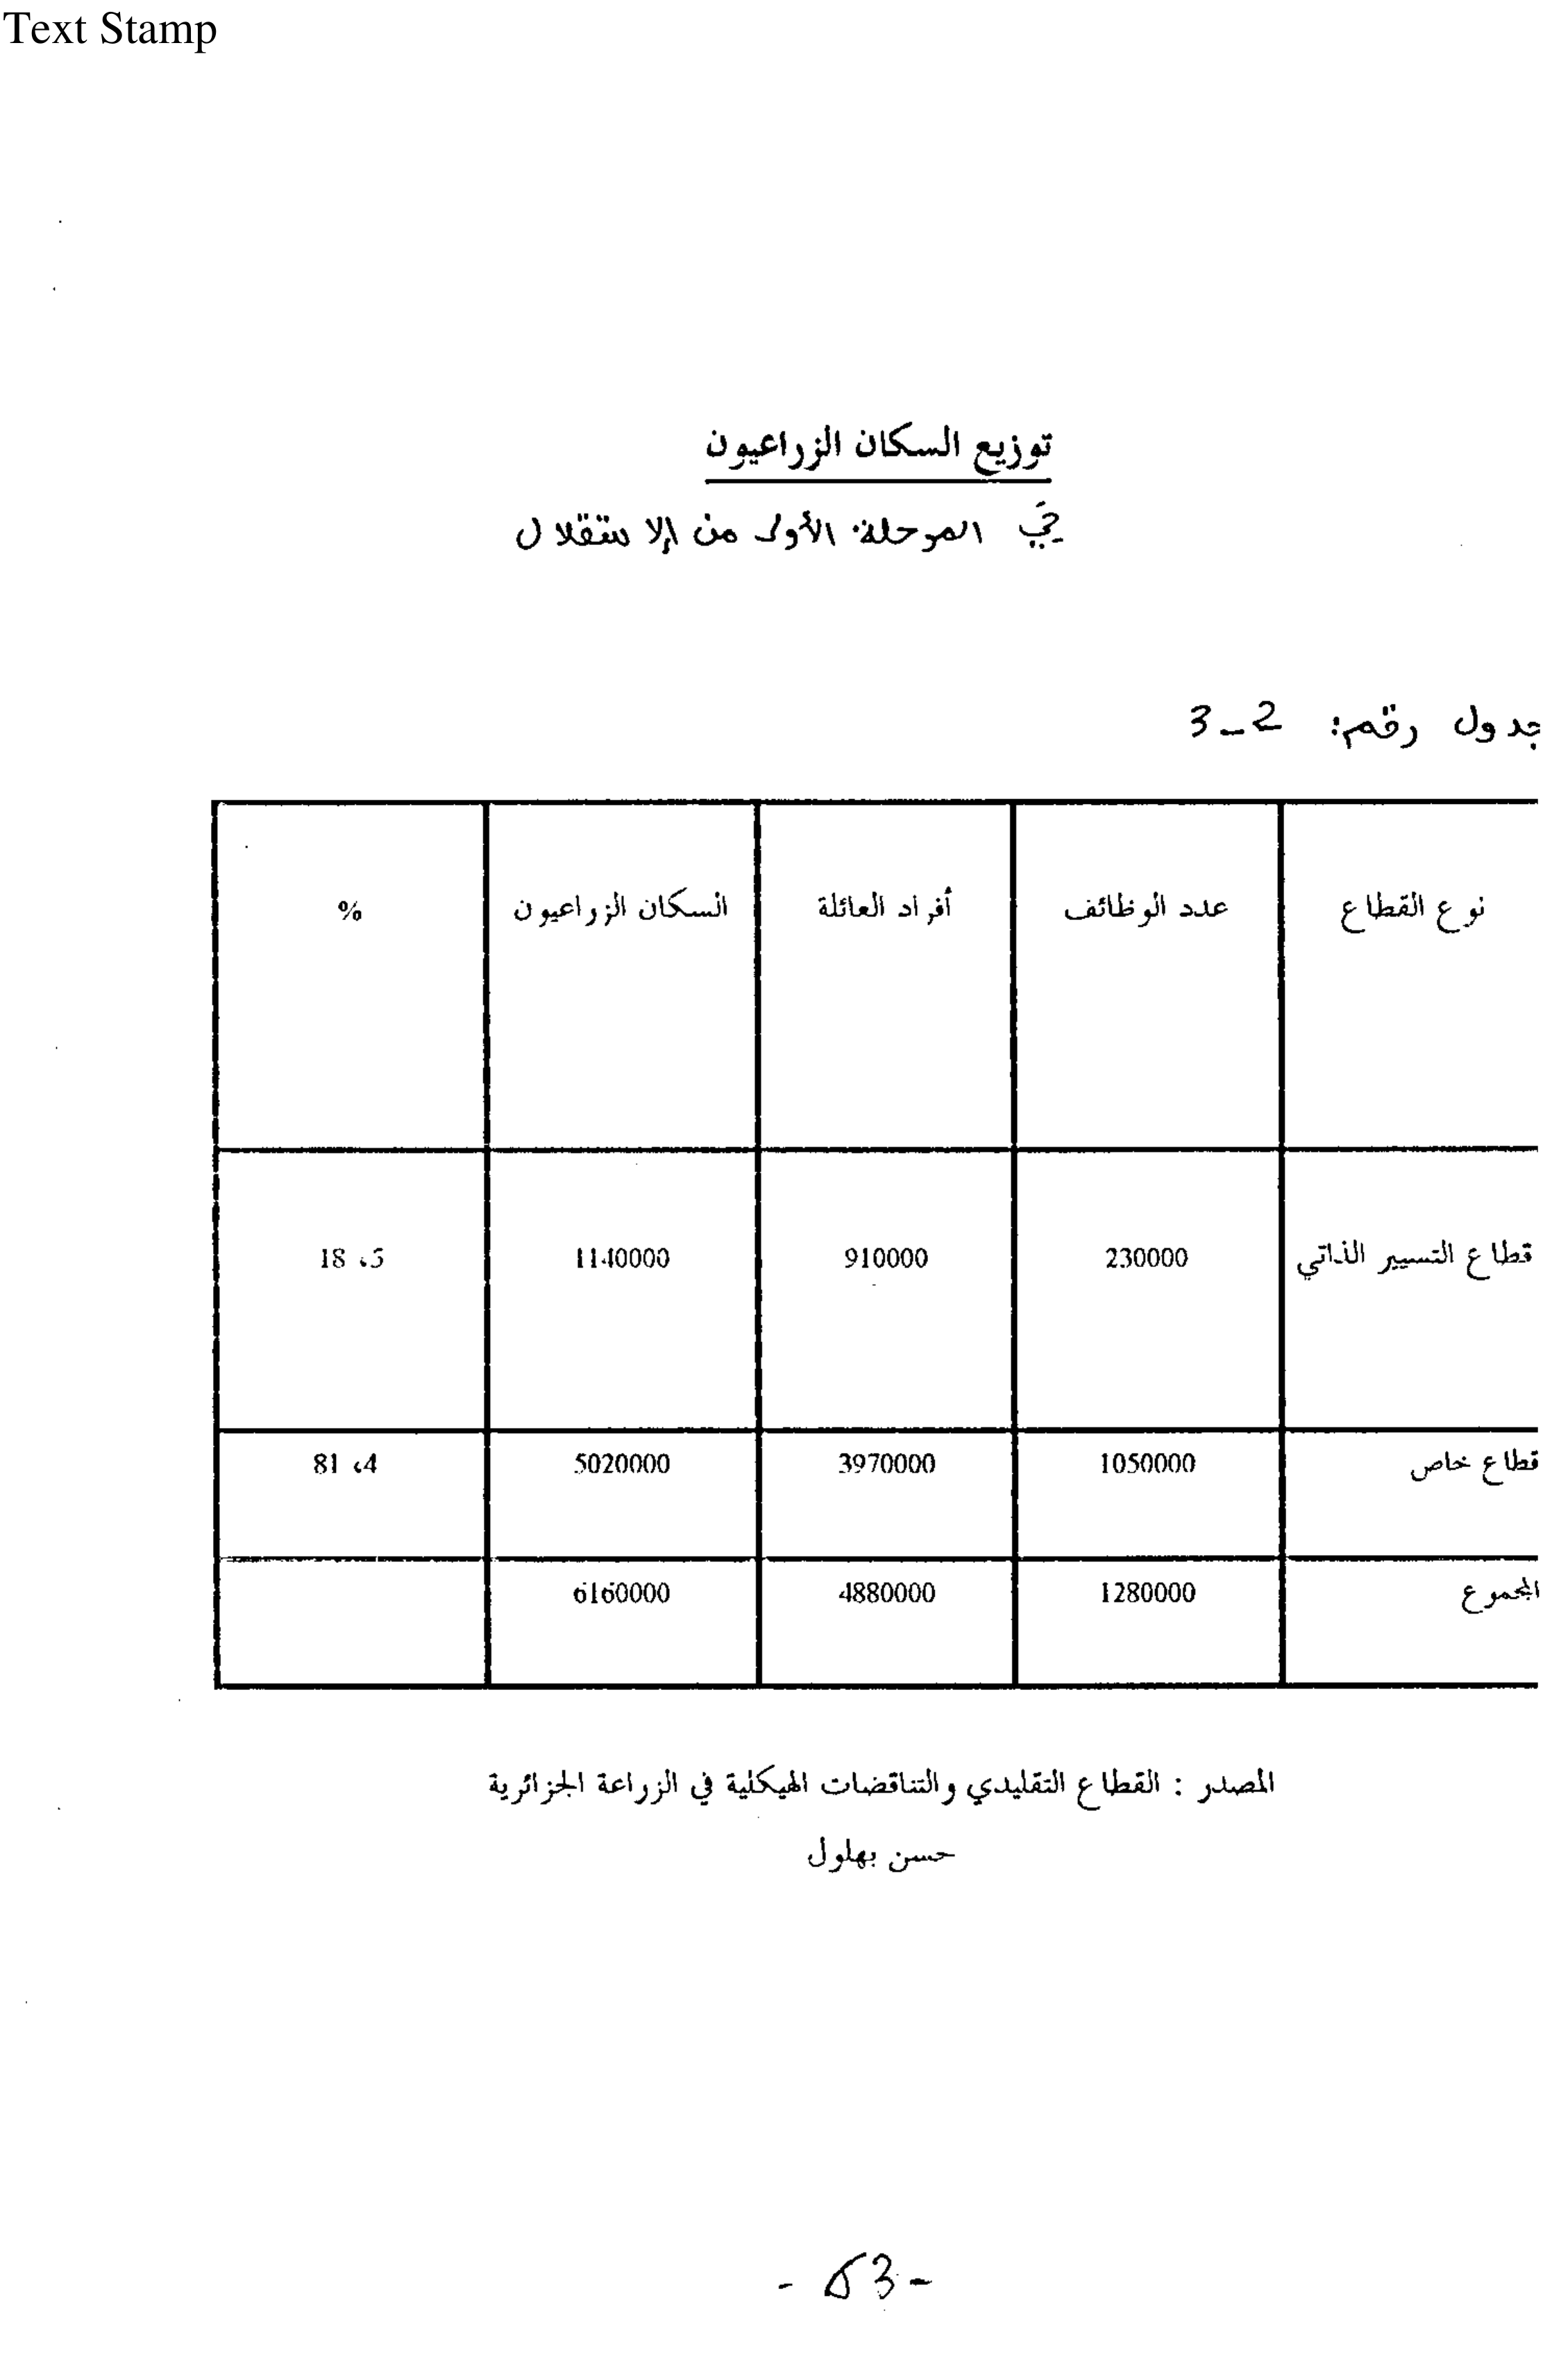 Text Stamp
توزيع السكان الزراعيون
في المرحلة الأولى من الإستقلال
جدول رقم: 2-3
نوع القطاع عدد الوظائف أفراد العائلة السكان الزراعيون %
قطاع التسيير الذاتي 230000 910000 1140000 18 ،5
قطاع خاص 1050000 3970000 5020000 81 ،4
المجموع 1280000 4880000 6160000
المصدر : القطاع التقليدي والتناقضات الهيكلية في الزراعة الجزائرية
حسن بهلول
- 63 -